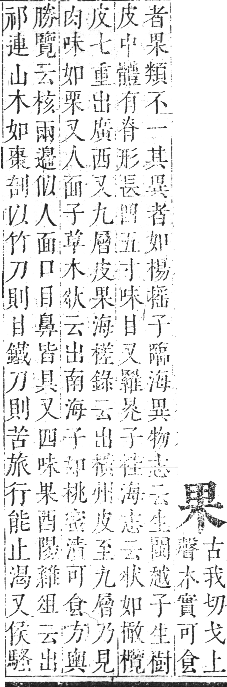 果
古我切戈上
聲木實可食
者果類不一其異者如楊榣子臨海異物志云生閩越子生樹
皮中體有脊形長四五寸味甘又羅晃子桂海志云狀如橄欖
皮七重出廣西又九層皮果海槎錄云出橫州皮至九層乃見
肉味如栗又人面子草木狀云出南海子如桃蜜漬可食方輿
勝覽云核兩邊似人面口目鼻皆具又四味果酉陽雜俎云出
祁連山木如棗剖以竹刀則甘鐵刀則苦旅行能止渴又侯騷